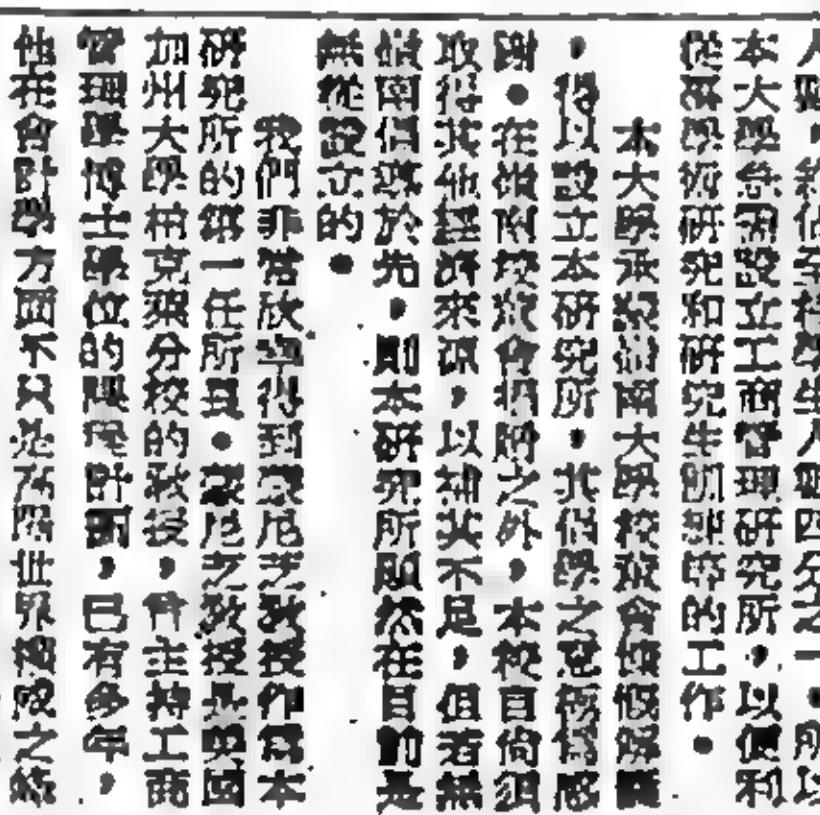 人數，約佔全校學生人數四分之一。所以
本大學急需設立工商管理研究所，以便利
從事學術研究和研究生訓練的工作。
本大學承嶺南大學校董會慷慨解囊
，得以設立本研究所，其倡學之忱極爲感
謝。在嶺南校董會捐助之外，本校自尚須
取得其他經濟來源，以補其不足，但若無
嶺南倡導於先，則本研究所顯然在目前是
無從設立的。
我們非常欣幸得到蒙尼芝敎授作爲本
研究所的第一任所長。蒙尼芝敎授是美國
加州大學柏克萊分校的敎授，曾主持工商
管理學博士學位的課程計劃，已有多年，
他在會計學方面不只是有關世界